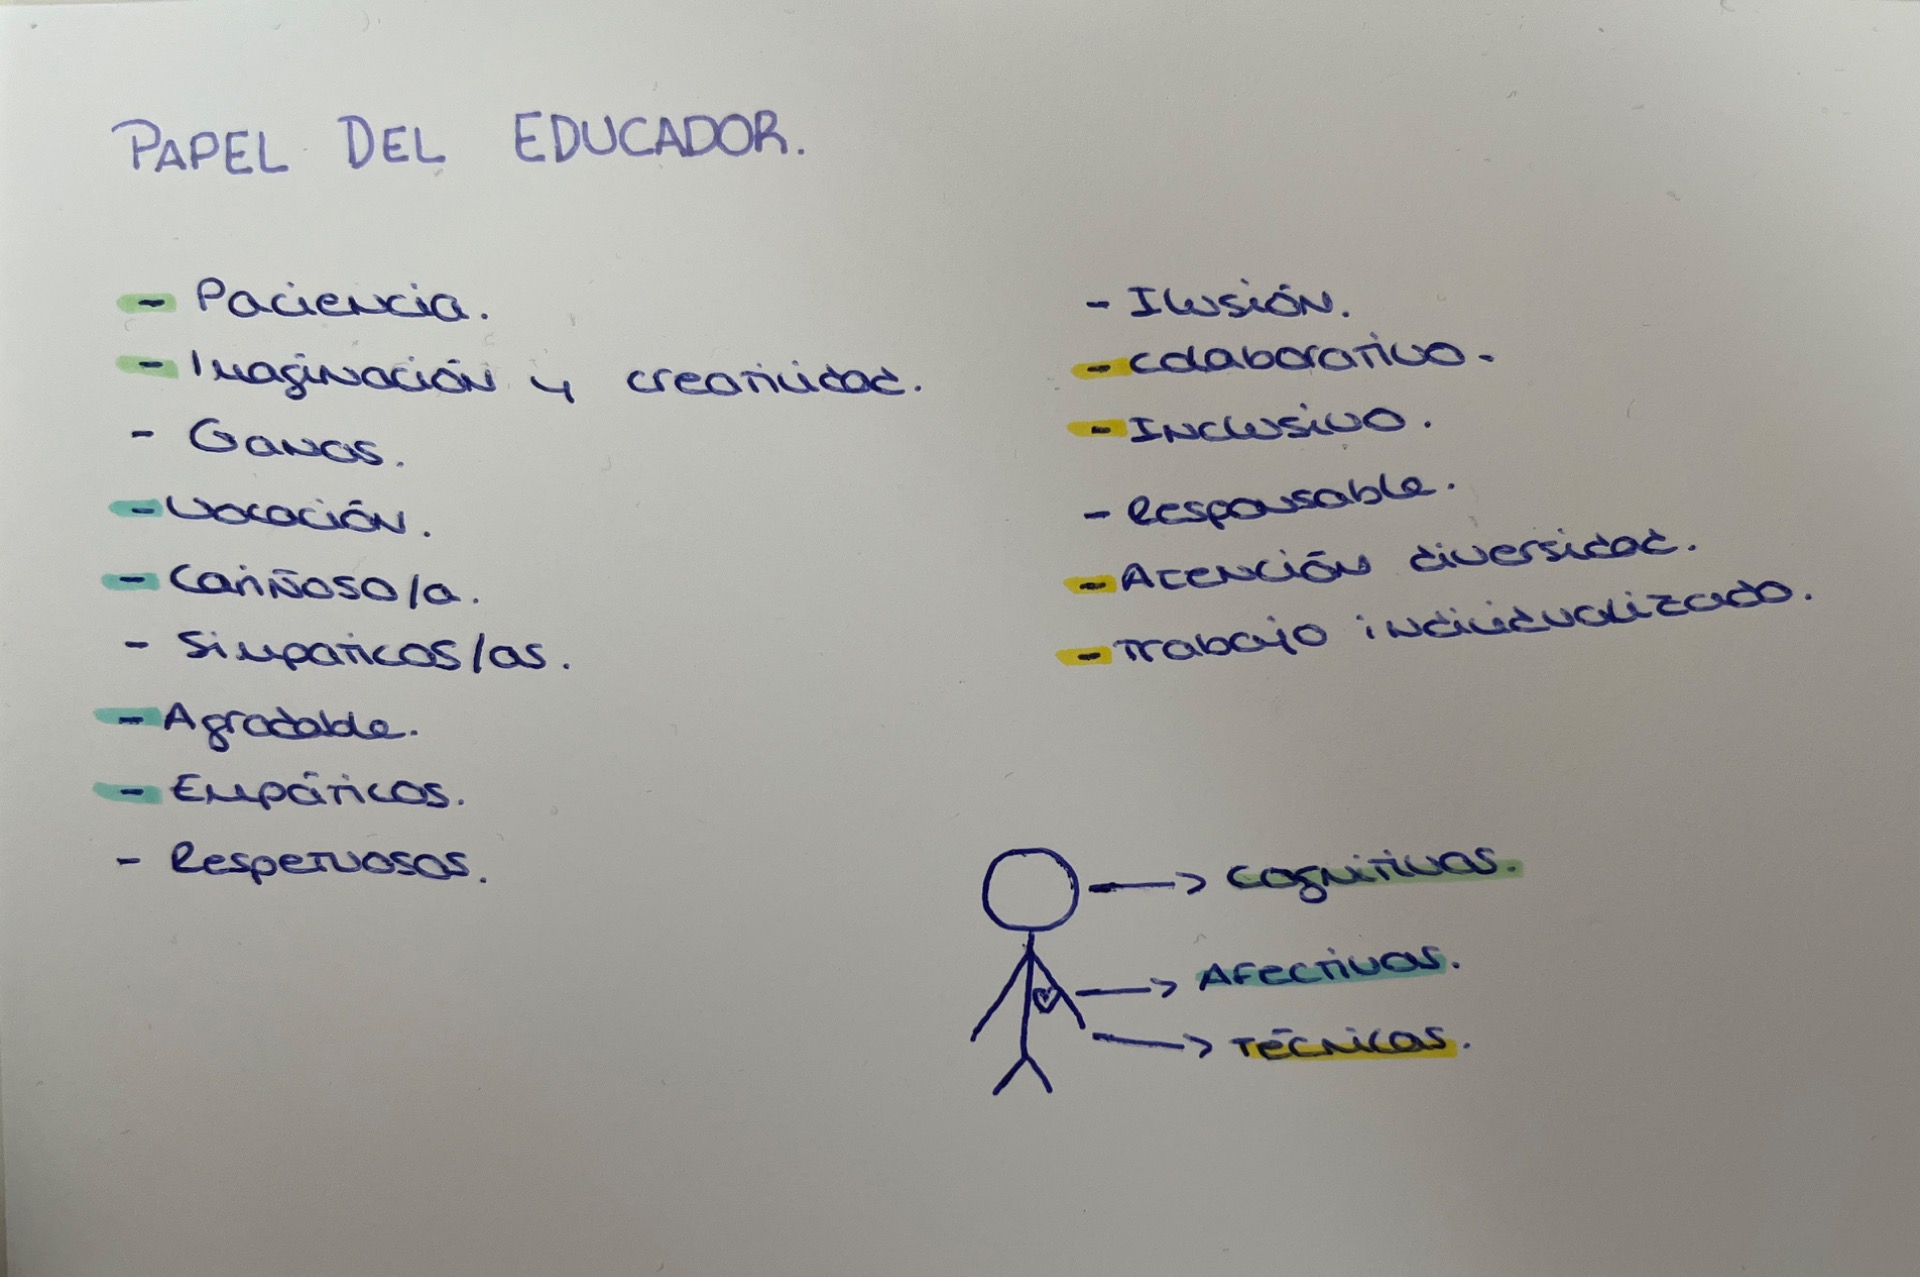 PAPEL DEL EDUCADOR.
- Paciencia.
- Imaginación y creatividad.
- Ganas.
- Vocación.
- Cariñoso/a.
- Simpaticos/as.
- Agradable.
- Empáticos.
- Respetuosos.
- Ilusión.
- colaborativo.
- Inclusivo.
- Responsable.
- Atención diversidad.
- Trabajo individualizado.
→ cognitivas.
→ Afectivas.
→ Técnicas.